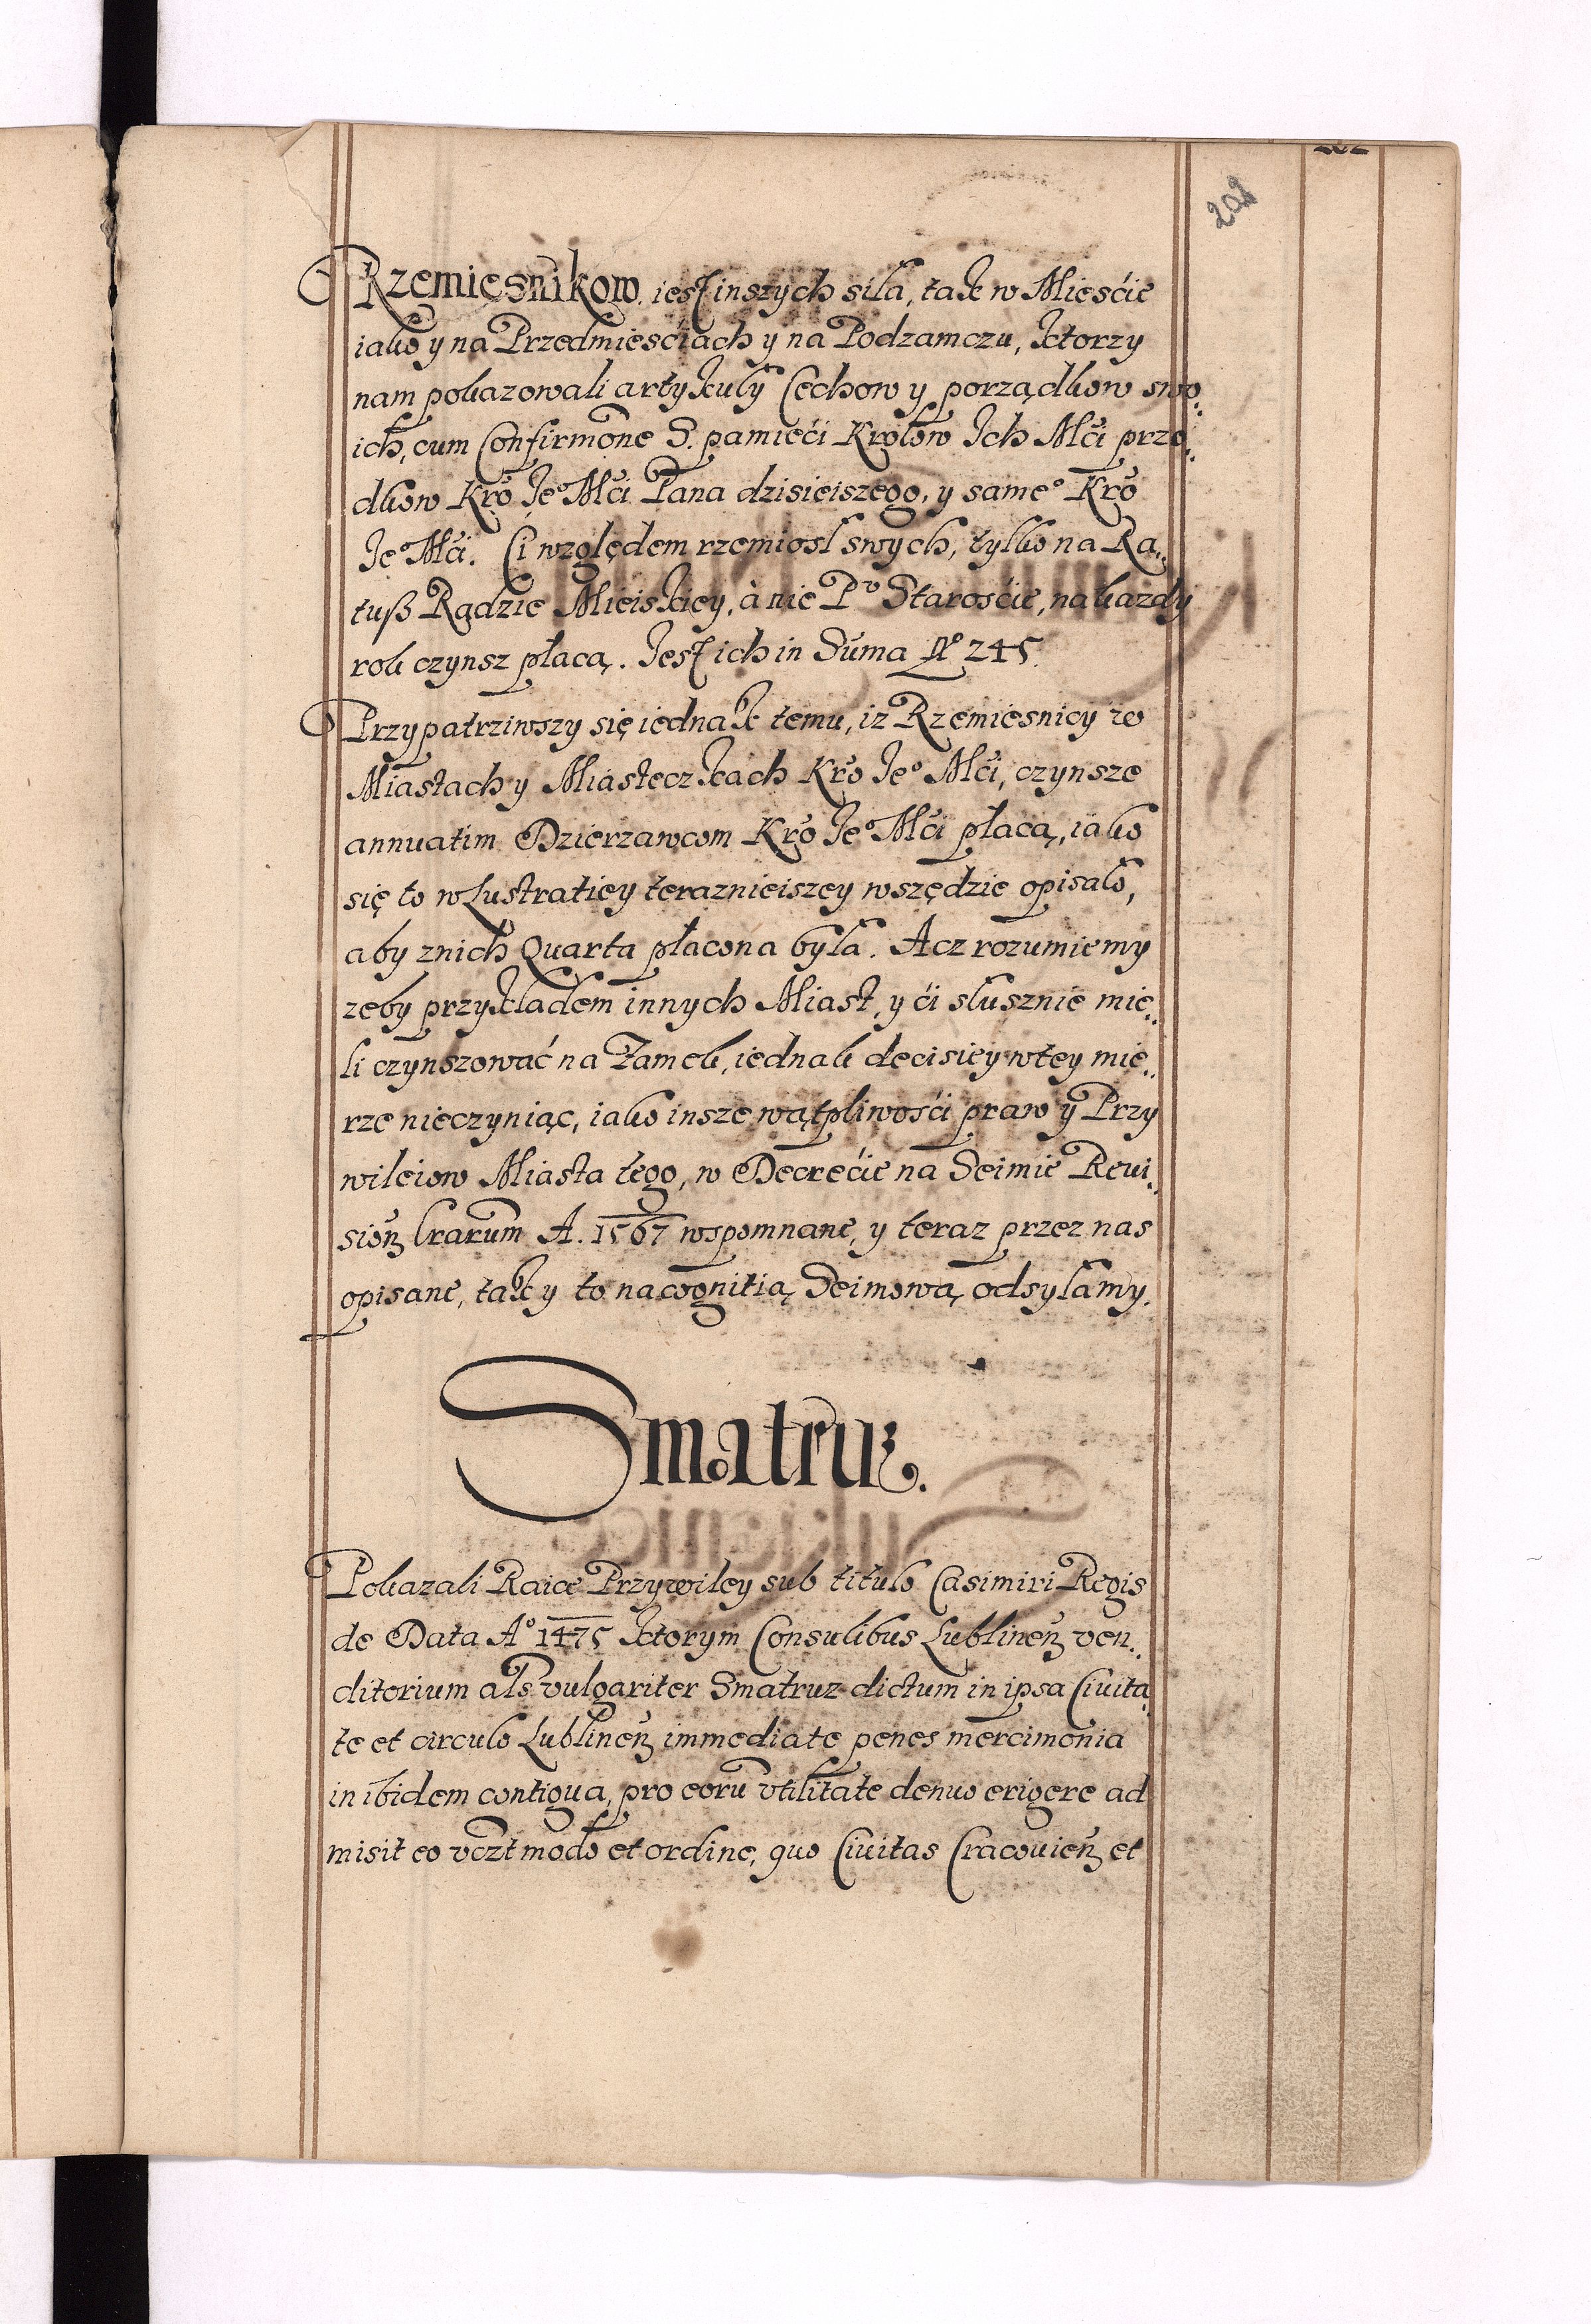 208
Rzemięsnikow iest inszych siła, tak w Miesćie
iako y na Przedmiesćiach y na Podzamczu, ktorzy
nam pokazowali artykuły Cechow y porządkow swo„
ich, cum Confirmõne S. pamięći Krolow Ich Mći prze„
dkow Kro Jeº Mći Pana dzisieiszego, y sameº Kro
Jeº Mći. Ci względem rzemiosł swych, tylko na Ra„
tuß Radzie Mieiskiey, à nie Pᵛ Starosćie, na kazdy
rok czynsz płacą. Jest ich in Suma Nº 245.
Przypatrziwszy się iednak temu, iz Rzemiesnicy w
Miastach y Miasteczkach Kro Jeº Mći, czynsze
annuatim Dzierzawcom Kro Jeº Mći płacą, iako
się to w Lustratiey teraznieiszey wszędzie opisało,
aby znich Quarta płacona była. Acz rozumiemy
zeby przykładem innych Miast, y ći słusznie mie„
li czynszować na Zamek, iednak decisiey wtey mie„
rze nieczyniąc, iako insze wątpliwosći praw y Przy
wileiow Miasta tego, w Decrećie na Seimie Reui„
sioñ Lrarum A. 1567 wspomnane, y teraz przez nas
opisane, tak y to na cognitią Seimową odsyłamy.
Smatruz.
Pokazali Raice Przywiley sub titulo Casimiri Regis
de Data Aº 1475 ktorym Consulibus Lublineñ ven„
ditorium als vulgariter Smatruz dictum in ipsa Ciuita„
te et circulo Lublineñ immediate penes mercimonia
in ibidem contigua, pro eorũ vtilitate denuo erigere ad
misit eo vczt modo et ordine, quo Ciuitas Cracouieñ et